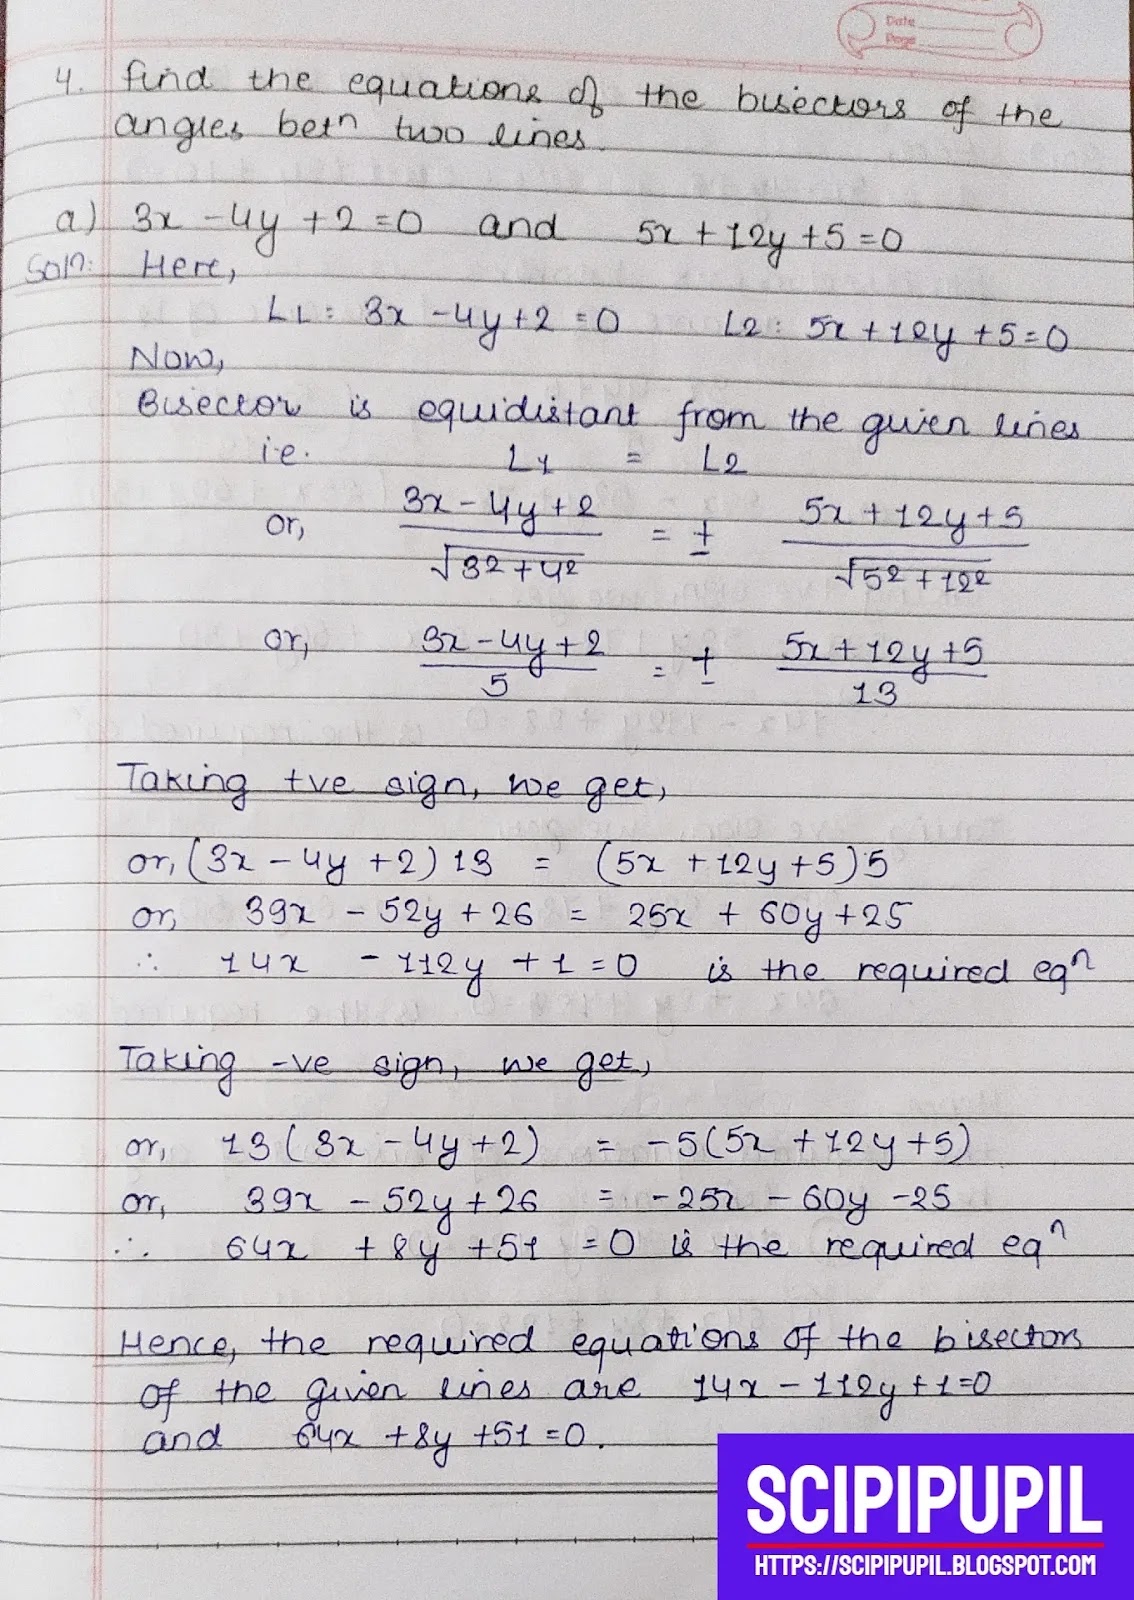 Date
Page
4. find the equations of the bisectors of the
angles betn two lines.
a) 3x - 4y + 2 = 0 and 5x + 12y + 5 = 0
Soln: Here,
L1: 3x - 4y + 2 = 0 L2: 5x + 12y + 5 = 0
Now,
Bisector is equidistant from the given lines
i.e. L1 = L2
or, (3x - 4y + 2)/√(3² + 4²) = ± (5x + 12y + 5)/√(5² + 12²)
or, (3x - 4y + 2)/5 = ± (5x + 12y + 5)/13
Taking +ve sign, we get,
or, (3x - 4y + 2) 13 = (5x + 12y + 5) 5
or, 39x - 52y + 26 = 25x + 60y + 25
∴ 14x - 112y + 1 = 0 is the required eqⁿ
Taking -ve sign, we get,
or, 13 (3x - 4y + 2) = -5 (5x + 12y + 5)
or, 39x - 52y + 26 = -25x - 60y - 25
∴ 64x + 8y + 51 = 0 is the required eqⁿ
Hence, the required equations of the bisectors
of the given lines are 14x - 112y + 1 = 0
and 64x + 8y + 51 = 0.
SCIPIPUPIL
HTTPS://SCIPIPUPIL.BLOGSPOT.COM